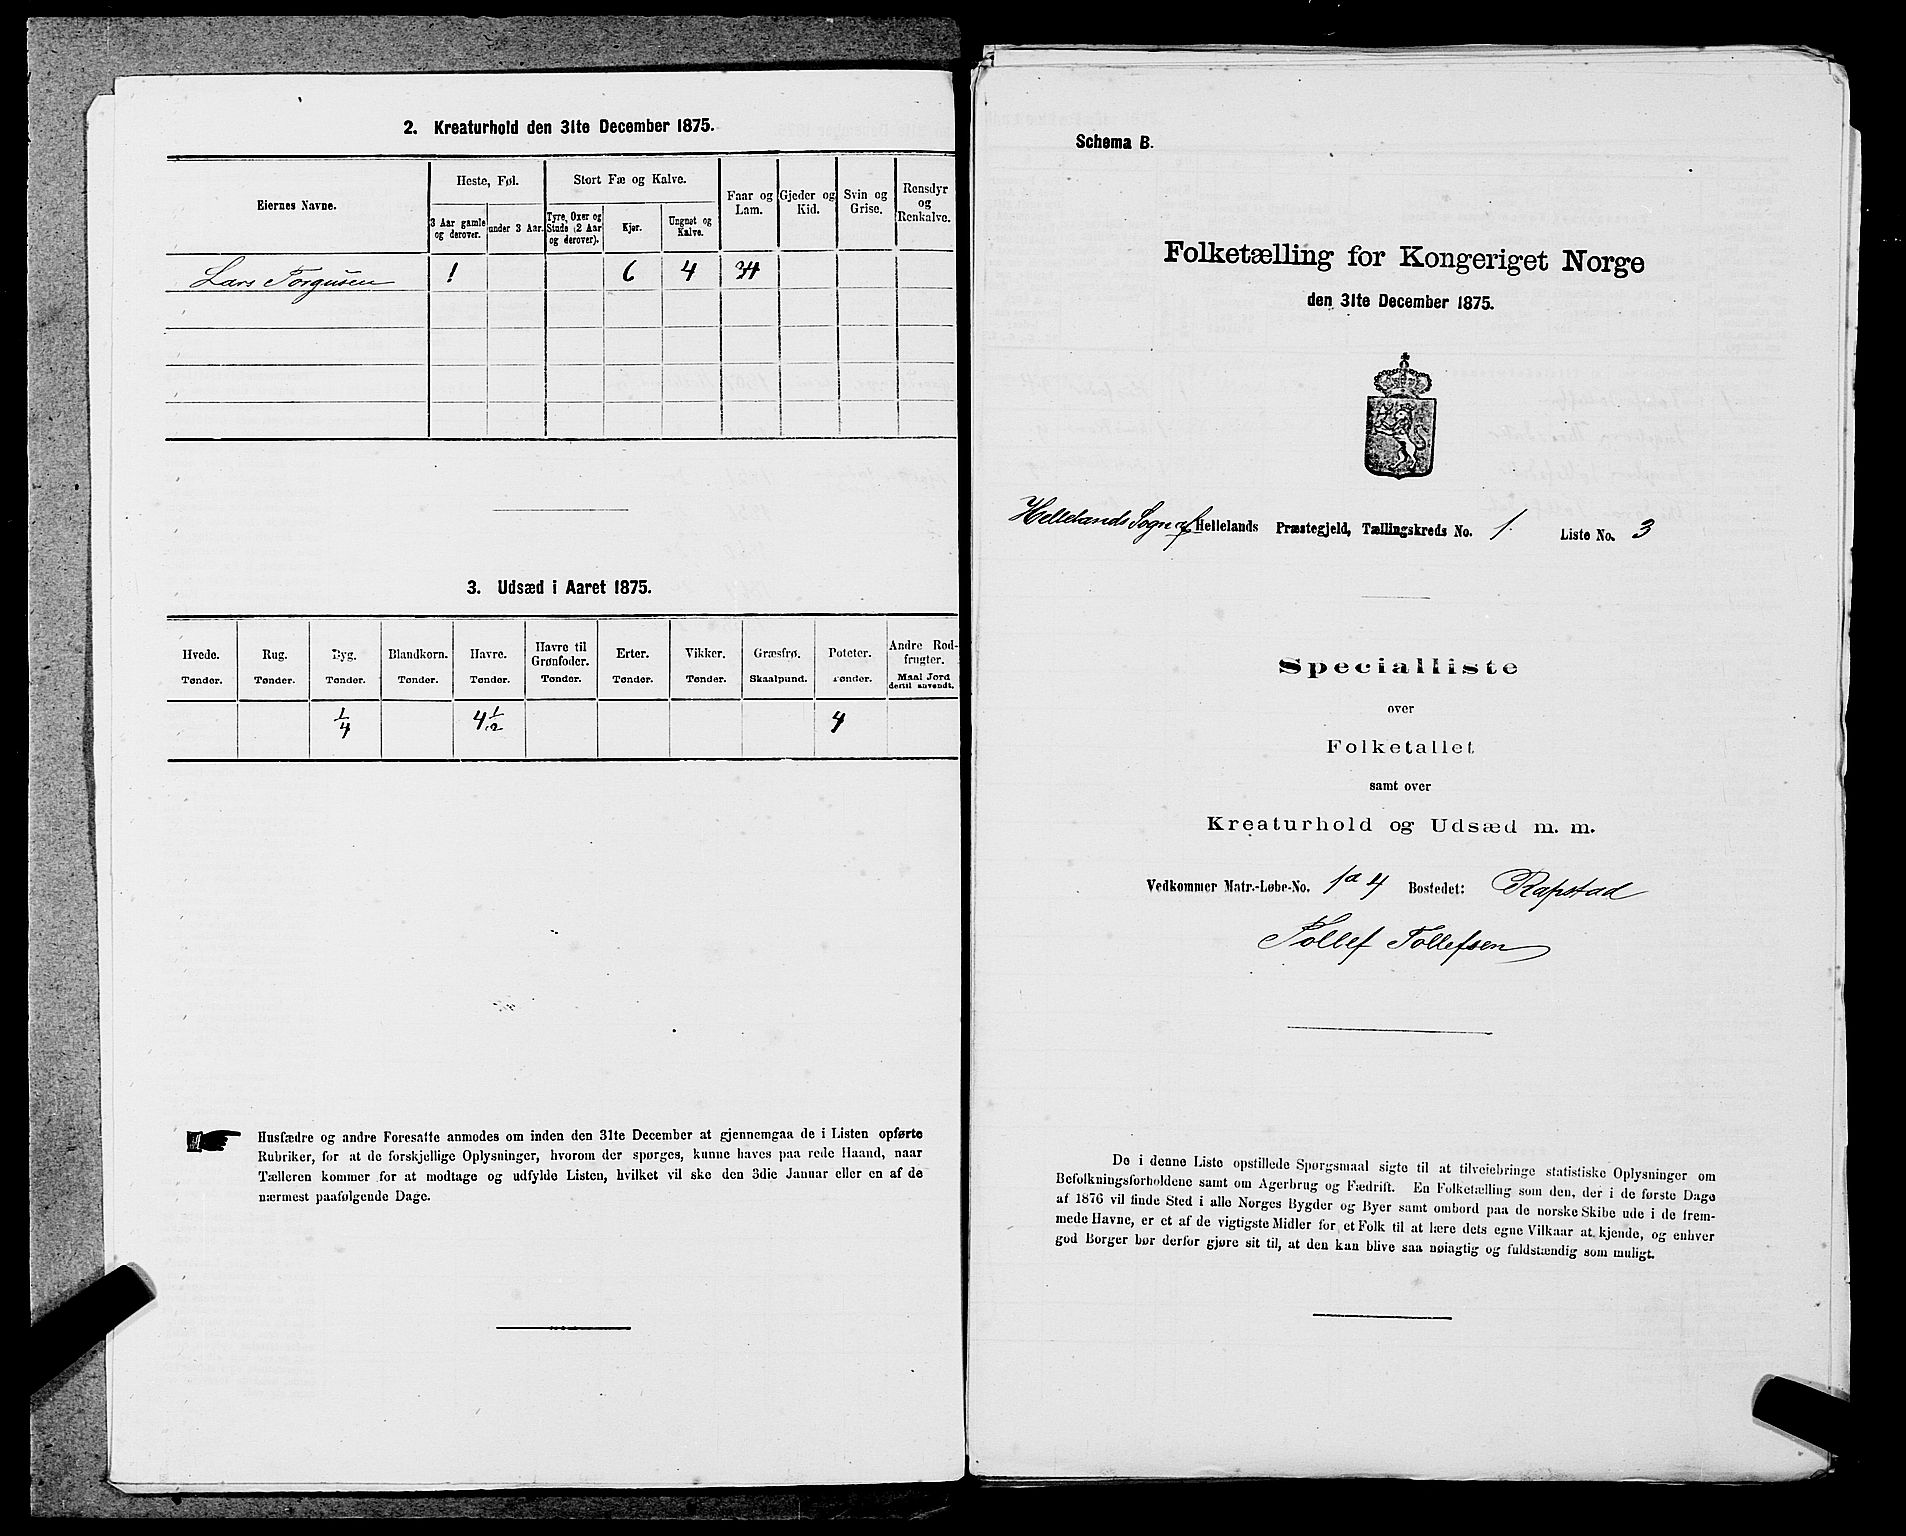 2. Kreaturhold den 31te December 1875.
Eiernes Navne.
Heste, Føl.
Stort Fæ og Kalve.
Faar og Lam.
Gjeder og Kid.
Svin og Grise.
Rensdyr og Renkalve.
3 Aar gamle og derover.
under 3 Aar.
Tyre, Oxer og Stude (2 Aar og derover).
Kjør.
Ungnøt og Kalve.
Lars Torgusen 1 6 4 34
3. Udsæd i Aaret 1875.
Hvede. Rug. Byg. Blandkorn. Havre. Havre til Grønfoder. Erter. Vikker. Græsfrø. Poteter. Andre Rodfrugter.
Tønder. Tønder. Tønder. Tønder. Tønder. Tønder. Tønder. Tønder. Skaalpund. Tønder. Maal Jord dertil anvendt.
1/4 4 1/2 4
Husfædre og andre Foresatte anmodes om inden den 31te December at gjennemgaa de i Listen opførte
Rubriker, for at de forskjellige Oplysninger, hvorom der spørges, kunne haves paa rede Haand, naar
Tælleren kommer for at modtage og udfylde Listen, hvilket vil ske den 3die Januar eller en af de
nærmest paafølgende Dage.
Schema B.
Folketælling for Kongeriget Norge
den 31te December 1875.
Hellelands Sogn af Hellelands Præstegjeld, Tællingskreds No. 1. Liste No. 3
Specialliste
over
Folketallet
samt over
Kreaturhold og Udsæd m. m.
Vedkommer Matr.-Løbe-No. 1a 4 Bostedet: Rapstad
Tollef Tollefsen
De i denne Liste opstillede Spørgsmaal sigte til at tilveiebringe statistiske Oplysninger om
Befolkningsforholdene samt om Agerbrug og Fædrift. En Folketælling som den, der i de første Dage
af 1876 vil finde Sted i alle Norges Bygder og Byer samt ombord paa de norske Skibe ude i de frem-
mede Havne, er et af de vigtigste Midler for et Folk til at lære dets egne Vilkaar at kjende, og enhver
god Borger bør derfor gjøre sit til, at den kan blive saa nøiagtig og fuldstændig som muligt.